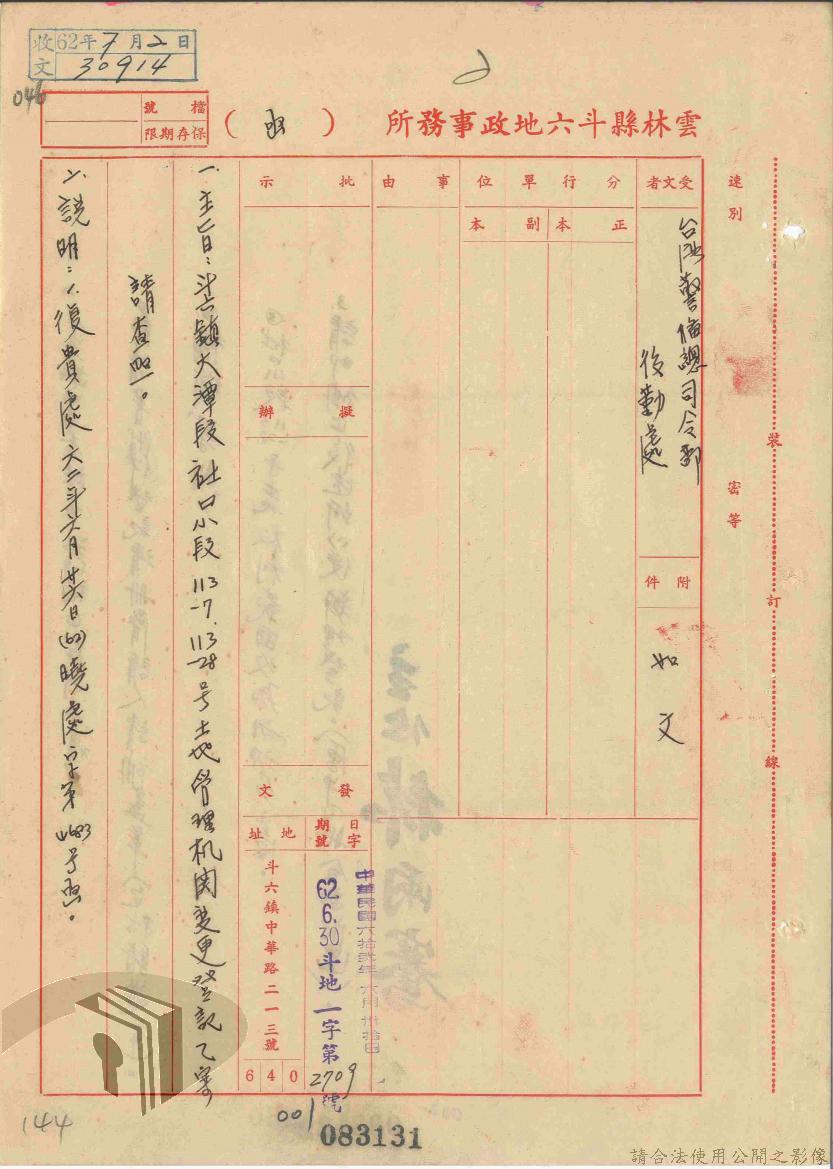 收文 62年7月2日
30914
046
檔號
保存期限
雲林縣斗六地政事務所(函)
速別
密等
裝
訂
線
受文者
台灣警備總司令部
後勤處
附件
如文
分行單位
正本
副本
事由
批示
擬辦
發文
日期
字號
中華民國六拾貳年六月卅拾日
62.6.30斗地一字第2709號
地址
斗六鎮中華路二一三號
640
一、主旨:斗六鎮大潭段社口小段113-7.113-28号土地管理机関变更登記乙案
請查照。
二、說明:1.復貴處六二年六月廿六日(62)曉處字第4683号函。
001
083131
144
請合法使用公開之影像